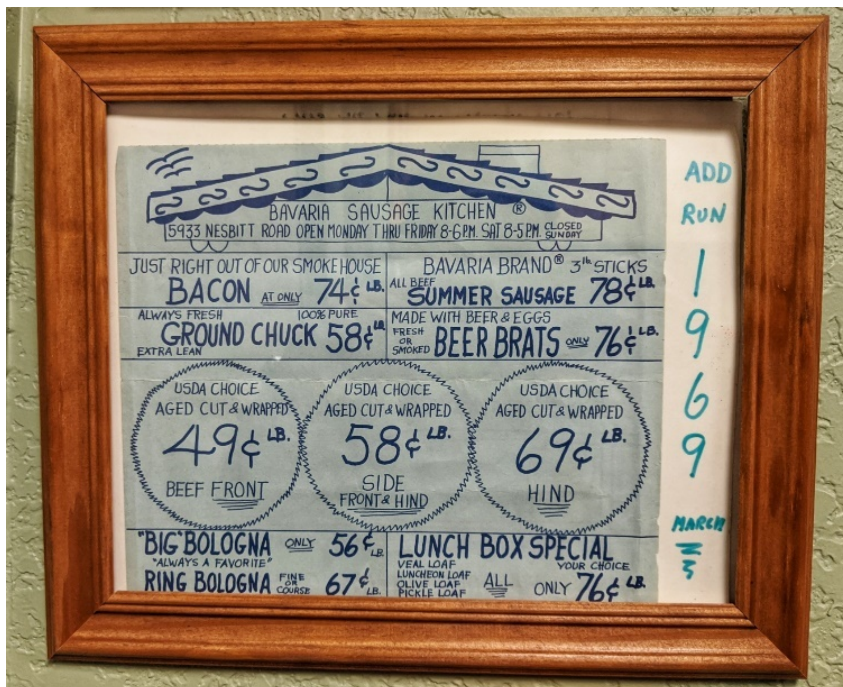 BAVARIA SAUSAGE KITCHEN ®
5933 NESBITT ROAD OPEN MONDAY THRU FRIDAY 8-6 P.M. SAT 8-5 P.M. CLOSED SUNDAY
JUST RIGHT OUT OF OUR SMOKEHOUSE
BACON AT ONLY 74¢ LB.
BAVARIA BRAND® 3 lb. STICKS
ALL BEEF SUMMER SAUSAGE 78¢ LB.
ALWAYS FRESH 100% PURE
GROUND CHUCK 58¢ LB
EXTRA LEAN
MADE WITH BEER & EGGS
FRESH OR SMOKED BEER BRATS ONLY 76¢ LB.
USDA CHOICE
AGED CUT & WRAPPED
49¢ LB.
BEEF FRONT
USDA CHOICE
AGED CUT & WRAPPED
58¢ LB.
SIDE
FRONT & HIND
USDA CHOICE
AGED CUT & WRAPPED
69¢ LB.
HIND
"BIG" BOLOGNA ONLY 56¢ LB
"ALWAYS A FAVORITE"
RING BOLOGNA FINE OR COURSE 67¢ LB.
LUNCH BOX SPECIAL
VEAL LOAF
LUNCHEON LOAF
OLIVE LOAF
PICKLE LOAF
ALL
YOUR CHOICE
ONLY 76¢ LB.
ADD
RUN
1
9
6
9
MARCH